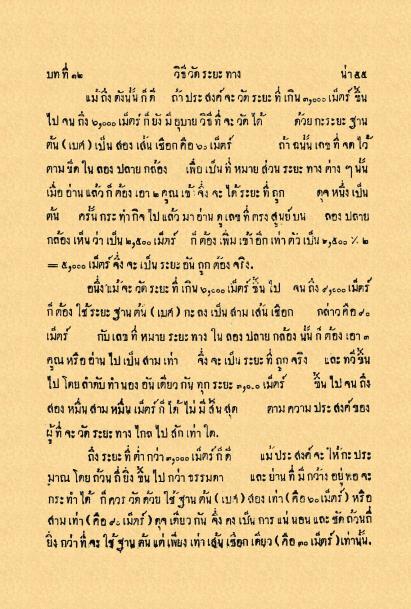 บทที่ ๑๒ วิธีวัดระยะทาง น่า ๕๕
แม้ถึงดังนั้นก็ดี ถ้าประสงค์จะวัดระยะที่เกิน ๓,๐๐๐ เม็ตร์ ขึ้น
ไปจนถึง ๖,๐๐๐ เม็ตร์ ก็ยังมีอุบายวิธีที่จะวัดได้ ด้วยกะระยะฐาน
ต้น (เบศ) เป็นสองเส้นเชือกคือ ๖๐ เม็ตร์ ถ้าฉนั้นเลขที่จดไว้
ตามขีดในลองปลายกล้อง เพื่อเป็นที่หมายส่วนระยะทางต่าง ๆ นั้น
เมื่ออ่านแล้วก็ต้องเอา ๒ คูณเข้า จึ่งจะได้ระยะที่ถูก ดุจหนึ่งเป็น
ต้น ครั้นกระทำกิจไปแล้วมาอ่านดูเลขที่ตรงสูนย์บน ลองปลาย
กล้องเห็นว่าเป็น ๒,๕๐๐ เม็ตร์ ก็ต้องเพิ่มเข้าอีกเท่าตัวเป็น ๒,๕๐๐ × ๒
= ๕,๐๐๐ เม็ตร์ จึ่งจะเป็นระยะอันถูกต้องจริง.
อนึ่งแม้จะวัดระยะที่เกิน ๖,๐๐๐ เม็ตร์ ขึ้นไป จนถึง ๙,๐๐๐ เม็ตร์
ก็ต้องใช้ระยะฐานต้น (เบศ) กะลงเป็นสามเส้นเชือก กล่าวคือ ๙๐
เม็ตร์ กับเลขที่หมายระยะทางในลองปลายกล้องนั้นก็ต้องเอา ๓
คูณหรืออ่านไปเป็นสามเท่า จึ่งจะเป็นระยะที่ถูกจริง และทวีขึ้น
ไปโดยลำดับทำนองอันเดียวกันทุกระยะ ๓,๐๐๐ เม็ตร์ ขึ้นไปจนถึง
สองหมื่นสามหมื่นเม็ตร์ก็ได้ไม่มีสิ้นสุด ตามความประสงค์ของ
ผู้ที่จะวัดระยะทางไกลไปสักเท่าใด.
ถึงระยะที่ต่ำกว่า ๓,๐๐๐ เม็ตร์ ก็ดี แม้ประสงค์จะให้กะประ
มาณโดยถ้วนถี่ยิ่งขึ้นไปกว่าธรรมดา และย่านที่มีกว้างอยู่พอจะ
กระทำได้ ก็ควรวัดด้วยใช้ฐานต้น (เบศ) สองเท่า (คือ ๖๐ เม็ตร์) หรือ
สามเท่า (คือ ๙๐ เม็ตร์) ดุจเดียวกัน จึ่งคงเป็นการแน่นอนและชัดถ้วนถี่
ยิ่งกว่าที่จะใช้ฐานต้นแต่เพียงเท่าเส้นเชือกเดียว (คือ ๓๐ เม็ตร์) เท่านั้น.